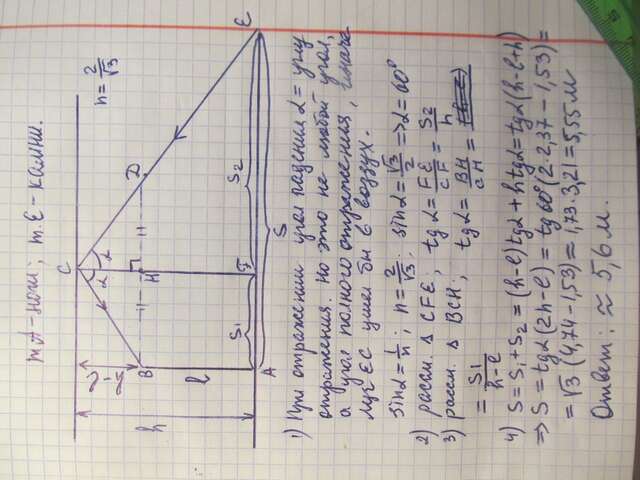 т.А - ноги; т.Е - камни.
n = 2/√3
C
E
D
B
H
A
F
α
α
h
h-l
l
S₁
S₂
S
1) При отражении угол падения α = углу
отражения. Но это не любой угол,
а угол полного отражения, иначе
луч EC ушел бы в воздух.
sinα = 1/n; n = 2/√3; sinα = √3/2 => α = 60°
2) рассм. Δ CFE; tgα = FE/CF = S₂/h
3) рассм. Δ BCH; tgα = BH/CH =
= S₁/h-l
4) S = S₁ + S₂ = (h-l)tgα + h tgα = tgα(h-l+h)
=> S = tgα(2h-l) = tg60°(2·2,37 - 1,53) =
= √3 (4,74 - 1,53) = 1,73·3,21 = 5,55 м
Ответ: ≈ 5,6 м.